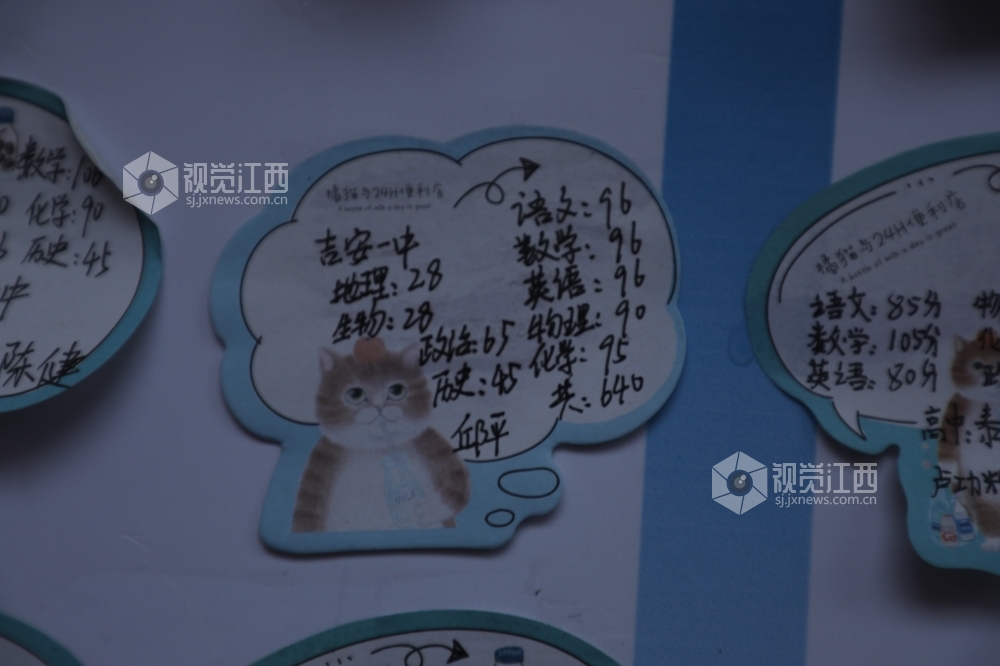 数学:100
化学:90
历史:45
陈健
视觉江西
sj.jxnews.com.cn
橘猫与24H便利店
A bottle of milk a day is great
吉安一中
地理:28
生物:28
政治:65
历史:45
邱平
语文:96
数学:96
英语:96
物理:90
化学:95
共:640
橘猫与24H便利店
A bottle of milk a day is great
语文:85分
数学:105分
英语:80分
高中:泰
卢功
视觉江西
sj.jxnews.com.cn